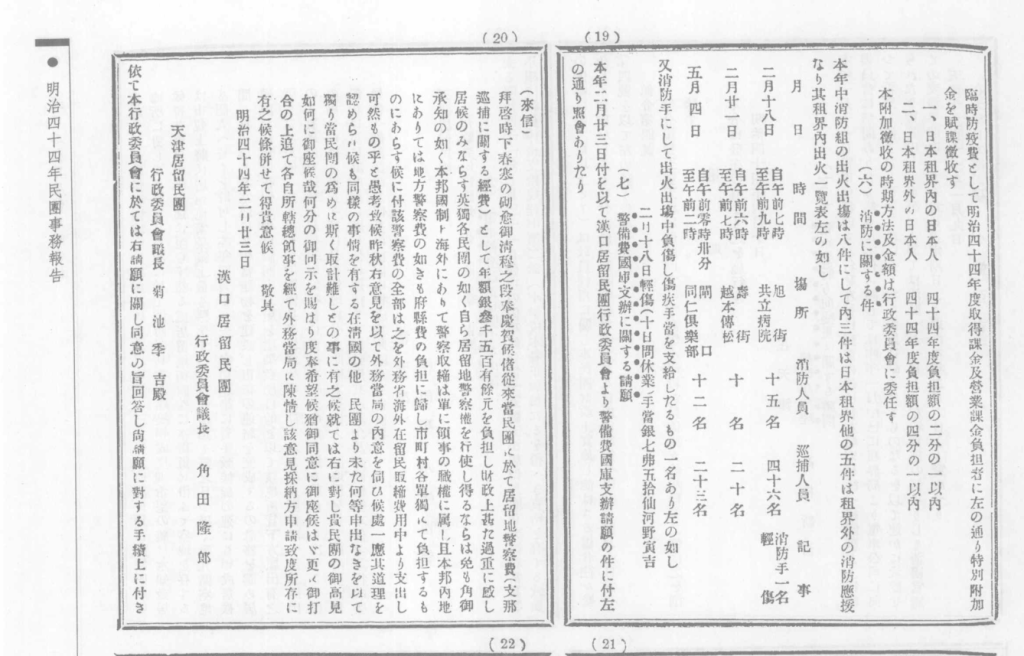 (19)
臨時防疫費として明治四十四年度取得課金及營業課金負担者に左の通り特別附加
金を賦課徴收す
一、日本租界內の日本人 四十四年度負担額の二分の一以內
二、日本租界外の日本人 四十四年度負担額の四分の一以內
本附加徴收の時期方法及金額は行政委員會に委任す
(六) 消防に關する件
本年中消防組の出火出塲は八件にして內三件は日本租界他の五件は租界外の消防應援
なり其租界內出火一覽表左の如し
月 日 時 間 塲 所 消防人員 巡捕人員 記 事
二月十八日 自午前七時 至午前九時 旭街 共立病院 十五名 四十六名 消防手一名 輕傷
二月廿一日 自午前六時 至午前七時 壽街 越本傳松 十名 二十名
五月四日 自午前零時卅分 至午前二時 閘口 同仁俱樂部 十二名 二十三名
又消防手にして出火出塲中負傷し傷疾手當を支給したるもの一名あり左の如し
二月十八日輕傷(十日間休業)手當銀七弗五拾仙河野寅吉
(七) 警備費國庫支辦に關する請願
本年二月廿三日付を以て漢口居留民團行政委員會より警備費國庫支辦請願の件に付左
の通り照會ありたり
(20)
(來信)
拜啓時下春寒の砌愈御淸穆之段奉慶賀候偖從來當民團に於て居留地警察費(支那
巡捕に關する經費)として年額銀叁千五百有餘元を負担し財政上甚た過重に感し
居候のみならす英獨各民團の如く自ら居留地警察權を行使し得るならは兎も角御
承知の如く本邦國制上海外にありて警察取締は單に領事の職權に属し且本邦內地
にありては地方警察費の如きも府縣費の負担に歸し市町村各單獨にて負担するも
のにあらす候に付該警察費の全部は之を外務省海外在留民取締費用中より支出し
可然もの乎と愚考致候昨秋右意見を以て外務當局の內意を伺ひ候處一應其道理を
認められ候も同樣の事情を有する在淸國の他 民團より未た何等申出なきを以て
獨り當民團の爲めに斯く取計難しとの事に有之候就ては右に對し貴民團の御高見
如何に御座候哉何分の御回示を賜はり度本希望候猶御同意に御座候はゞ更に御打
合の上追て各自所轄總領事を經て外務當局に陳情し該意見採納方申請致度所存に
有之候條併せて得貴意候 敬具
明治四十四年二月廿三日
漢口居留民團
行政委員會議長 角田隆郎
天津居留民團
行政委員會議長 菊池季吉殿
依て本行政委員會に於ては右請願に關し同意の旨回答し尙請願に對する手續上に付き
● 明治四十四年民團事務報告
(21)
(22)